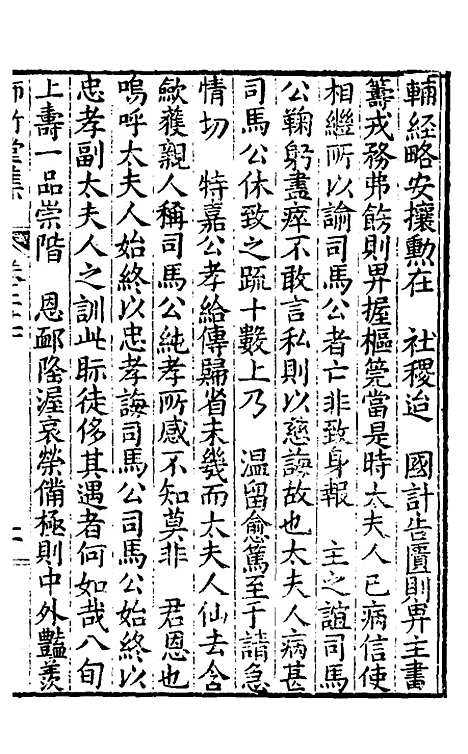 輔經略安攘勳在　社稷迨　國計告匱則畀主畫
籌戎務弗飭則畀握樞筦當是時太夫人已病信使
相繼所以諭司馬公者亡非致身報　主之誼司馬
公鞠躬盡瘁不敢言私則以慈誨故也太夫人病甚
司馬公休致之疏十數上乃　溫留愈篤至于請急
情切　特嘉公孝給傳歸省未幾而太夫人仙去含
歛獲親人稱司馬公純孝所感不知莫非　君恩也
嗚呼太夫人始終以忠孝誨司馬公司馬公始終以
忠孝副太夫人之訓此眎徒侈其遇者何如哉八旬
上壽一品崇階　恩郵隆渥哀榮備極則中外豔羨
師竹堂集　卷二十